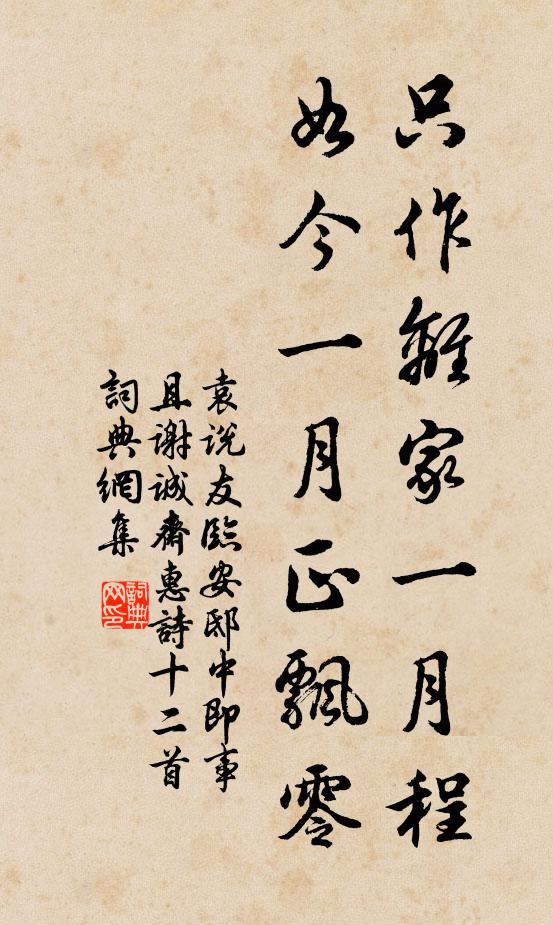 只作離家一月程
如今一月正飄零
袁说友臨安邸中即事
且謝誠齋惠詩十二首
詞典網集
詞典网印